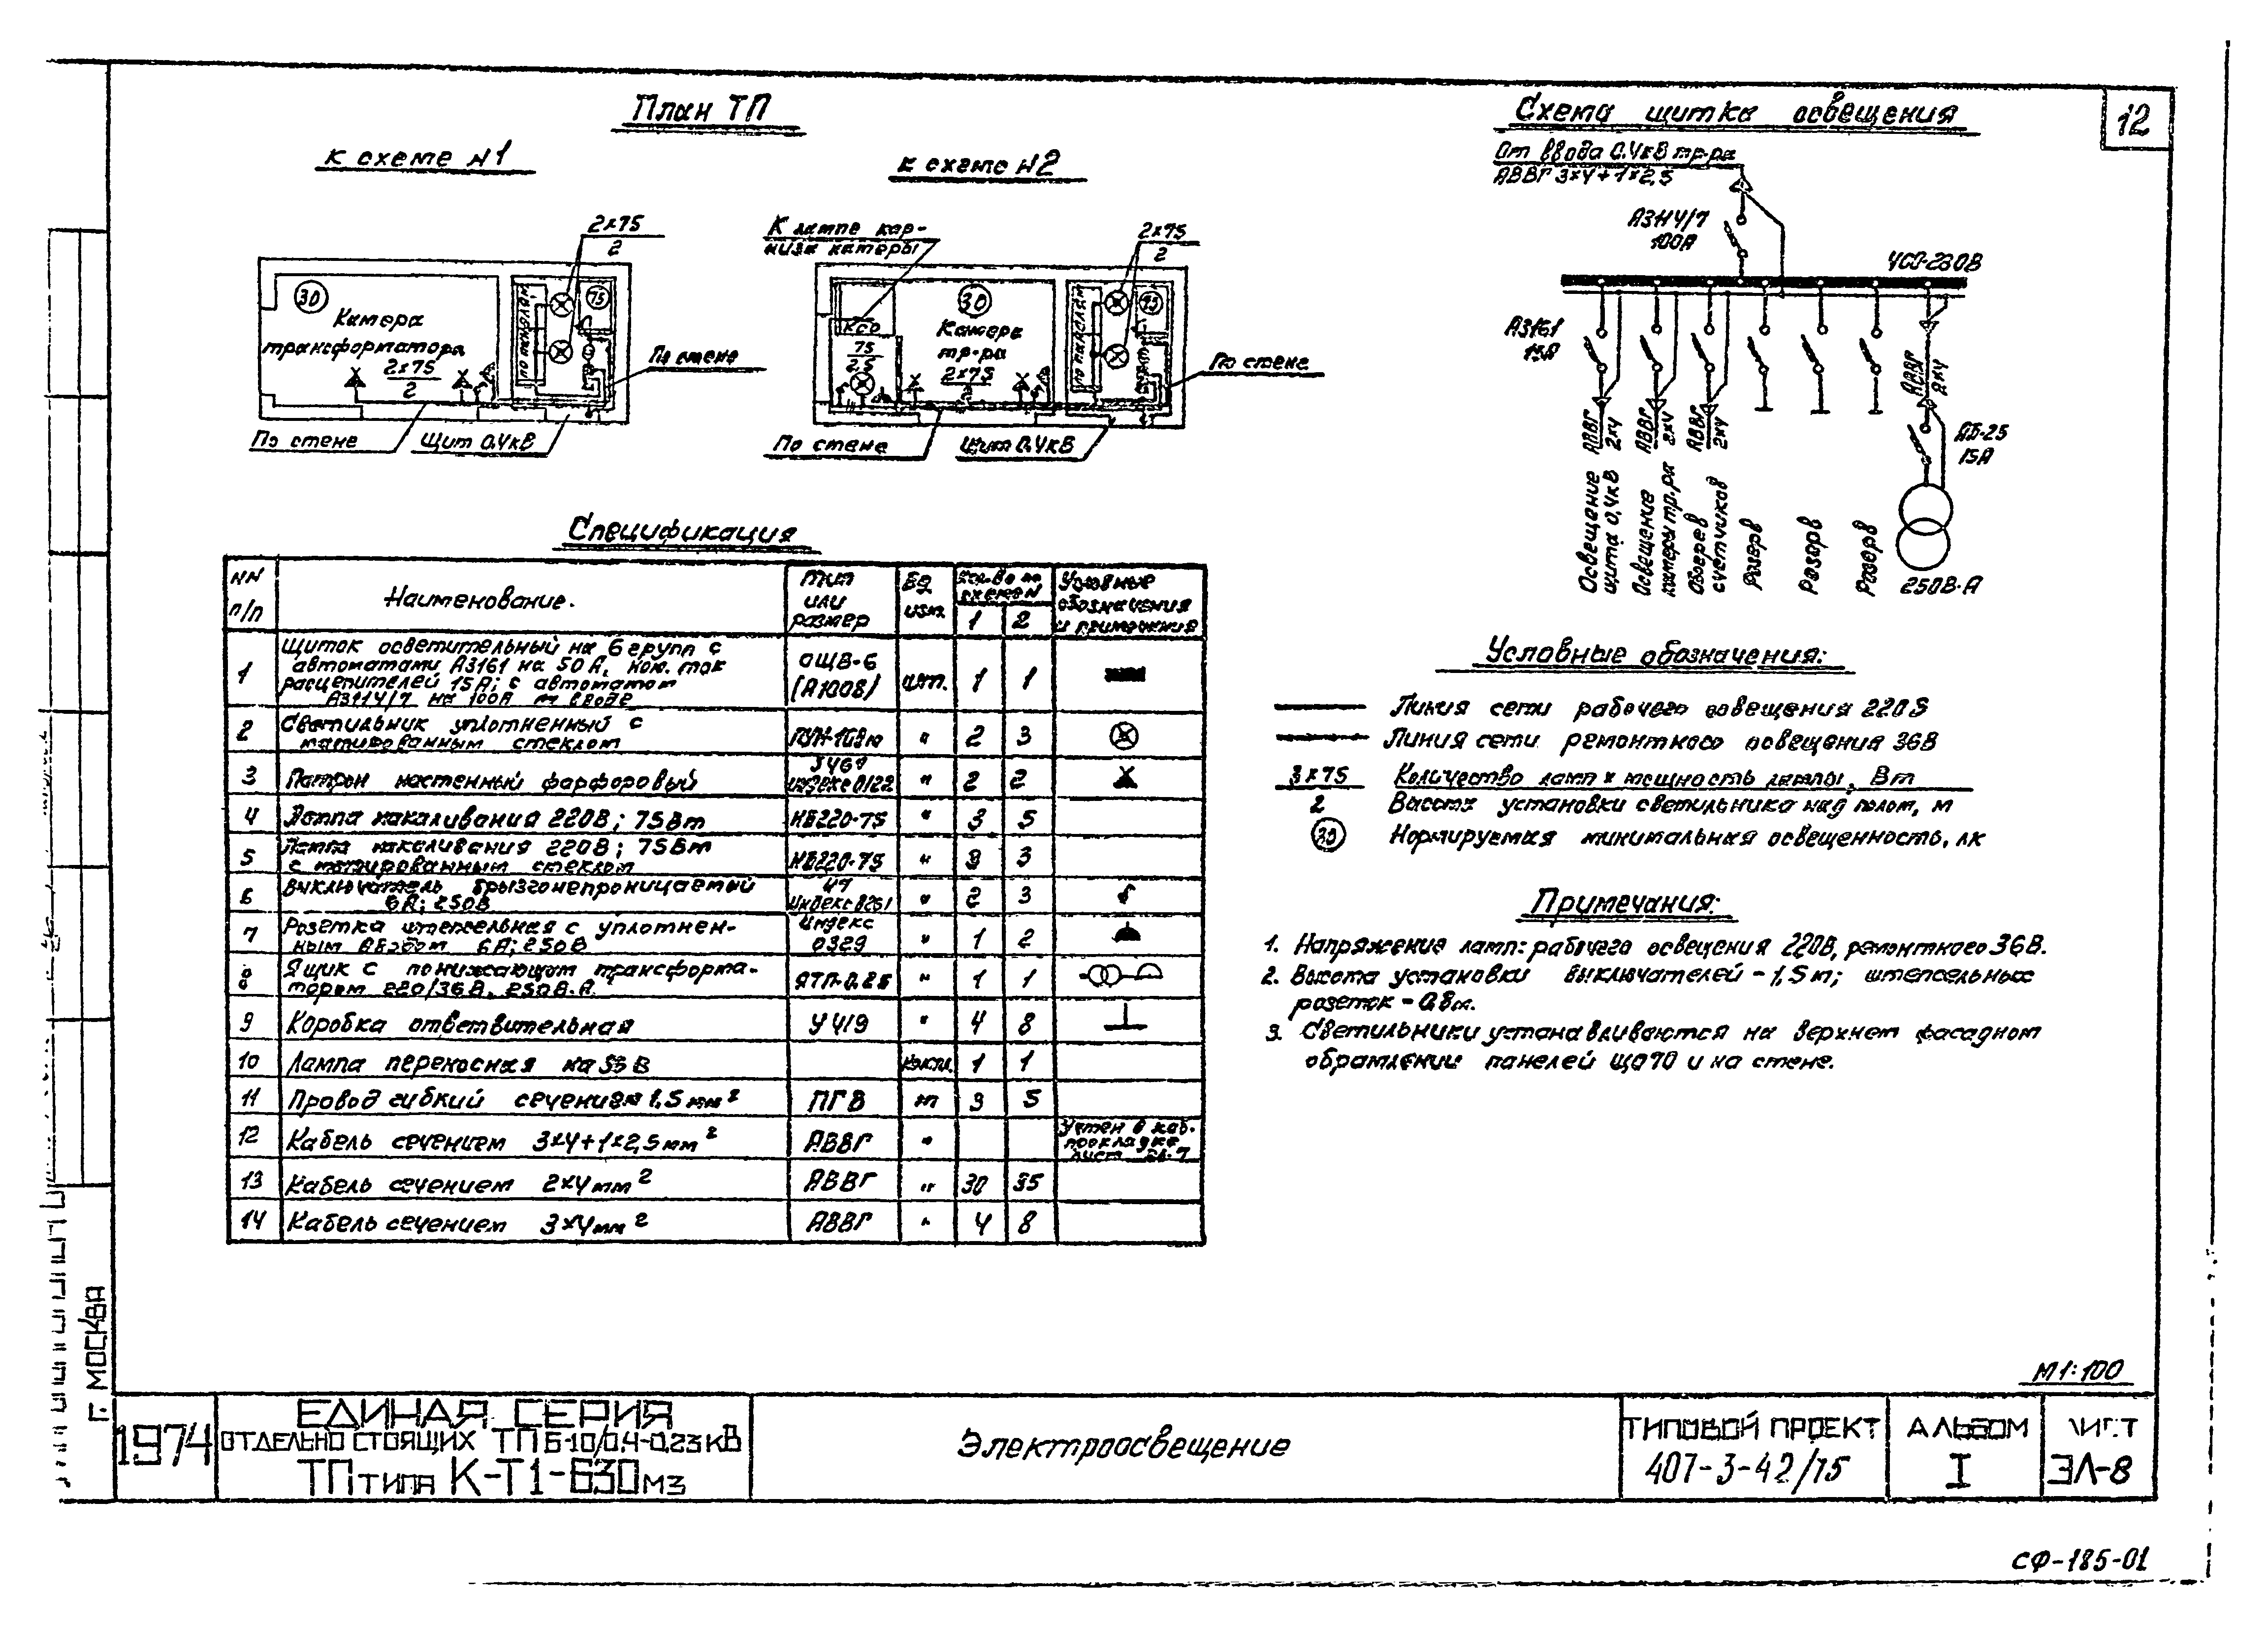 План ТП
к схеме №1
к схеме №2
2×75
2
30
75
Камера
трансформатора
2×75
2
По стене
По стене
Щит 0.4кВ
К лампе кар-
низа камеры
2×75
2
30
КСО
Камера
тр-ра
75
2,5
2×75
По стене
По стене
Щит 0.4кВ
Схема щитка освещения
12
От ввода 0.4кВ тр-ра
АВВГ 3×4+1×2,5
А3114/7
100А
УСО-230В
А3161
15А
АВВГ
2×4
АВВГ
2×4
АВВГ
2×4
АВВГ
2×4
АБ-25
15А
Освещение
щита 0,4кВ
Освещение
камеры тр.ра
Обогрев
счетчиков
Резерв
Резерв
Резерв
250В·А
Спецификация
NN п/п
Наименование.
Тип или размер
Ед. изм.
Кол-во по схеме N
1 2
Условные обозначения и примечания
1 Щиток осветительный на 6 групп с
автоматами А3161 на 50А, ном. ток
расцепителей 15А; с автоматом
А3114/7 на 100А на вводе
ОЩВ-6 (А1008) шт. 1 1
2 Светильник уплотненный с
матированным стеклом
" 2 3
3 Патрон настенный фарфоровый
индекс 0122 " 2 2
4 Лампа накаливания 220В; 75Вт НБ220-75 " 3 5
5 Лампа накаливания 220В; 75Вт
с матированным стеклом НБ220-75 " 3 3
6 Выключатель брызгонепроницаемый
6А; 250В
" 2 3
7 Розетка штепсельная с уплотнен-
ным вводом 6А; 250В
Индекс 0329 " 1 2
8 Ящик с понижающим трансформа-
тором 220/36В, 250В·А. ЯТП-0.25 " 1 1
9 Коробка ответвительная У419 " 4 8
10 Лампа переносная на 36В компл. 1 1
11 Провод гибкий сечением 1,5мм² ПГВ м 3 5
12 Кабель сечением 3×4+1×2,5мм² АВВГ " Учтен в каб. прокладке лист ЭЛ-7
13 Кабель сечением 2×4мм² АВВГ " 30 35
14 Кабель сечением 3×4мм² АВВГ " 4 8
Условные обозначения:
Линия сети рабочего освещения 220В
Линия сети ремонтного освещения 36В
3×75 Количество ламп × мощность лампы, Вт
2 Высота установки светильника над полом, м
30 Нормируемая минимальная освещенность, лк
Примечания:
1. Напряжение ламп: рабочего освещения 220В, ремонтного 36В.
2. Высота установки выключателей – 1,5м; штепсельных
розеток – 0,8м.
3. Светильники устанавливаются на верхнем фасадном
обрамлении панелей ЩО70 и на стене.
М1:100
г. МОСКВА
1974
ЕДИНАЯ СЕРИЯ
ОТДЕЛЬНО СТОЯЩИХ ТП 6-10/0,4-0,23кВ
ТП типа К-Т1-630м3
Электроосвещение
ТИПОВОЙ ПРОЕКТ
407-3-42/75
АЛЬБОМ
I
ЛИСТ
ЭЛ-8
СФ-185-01